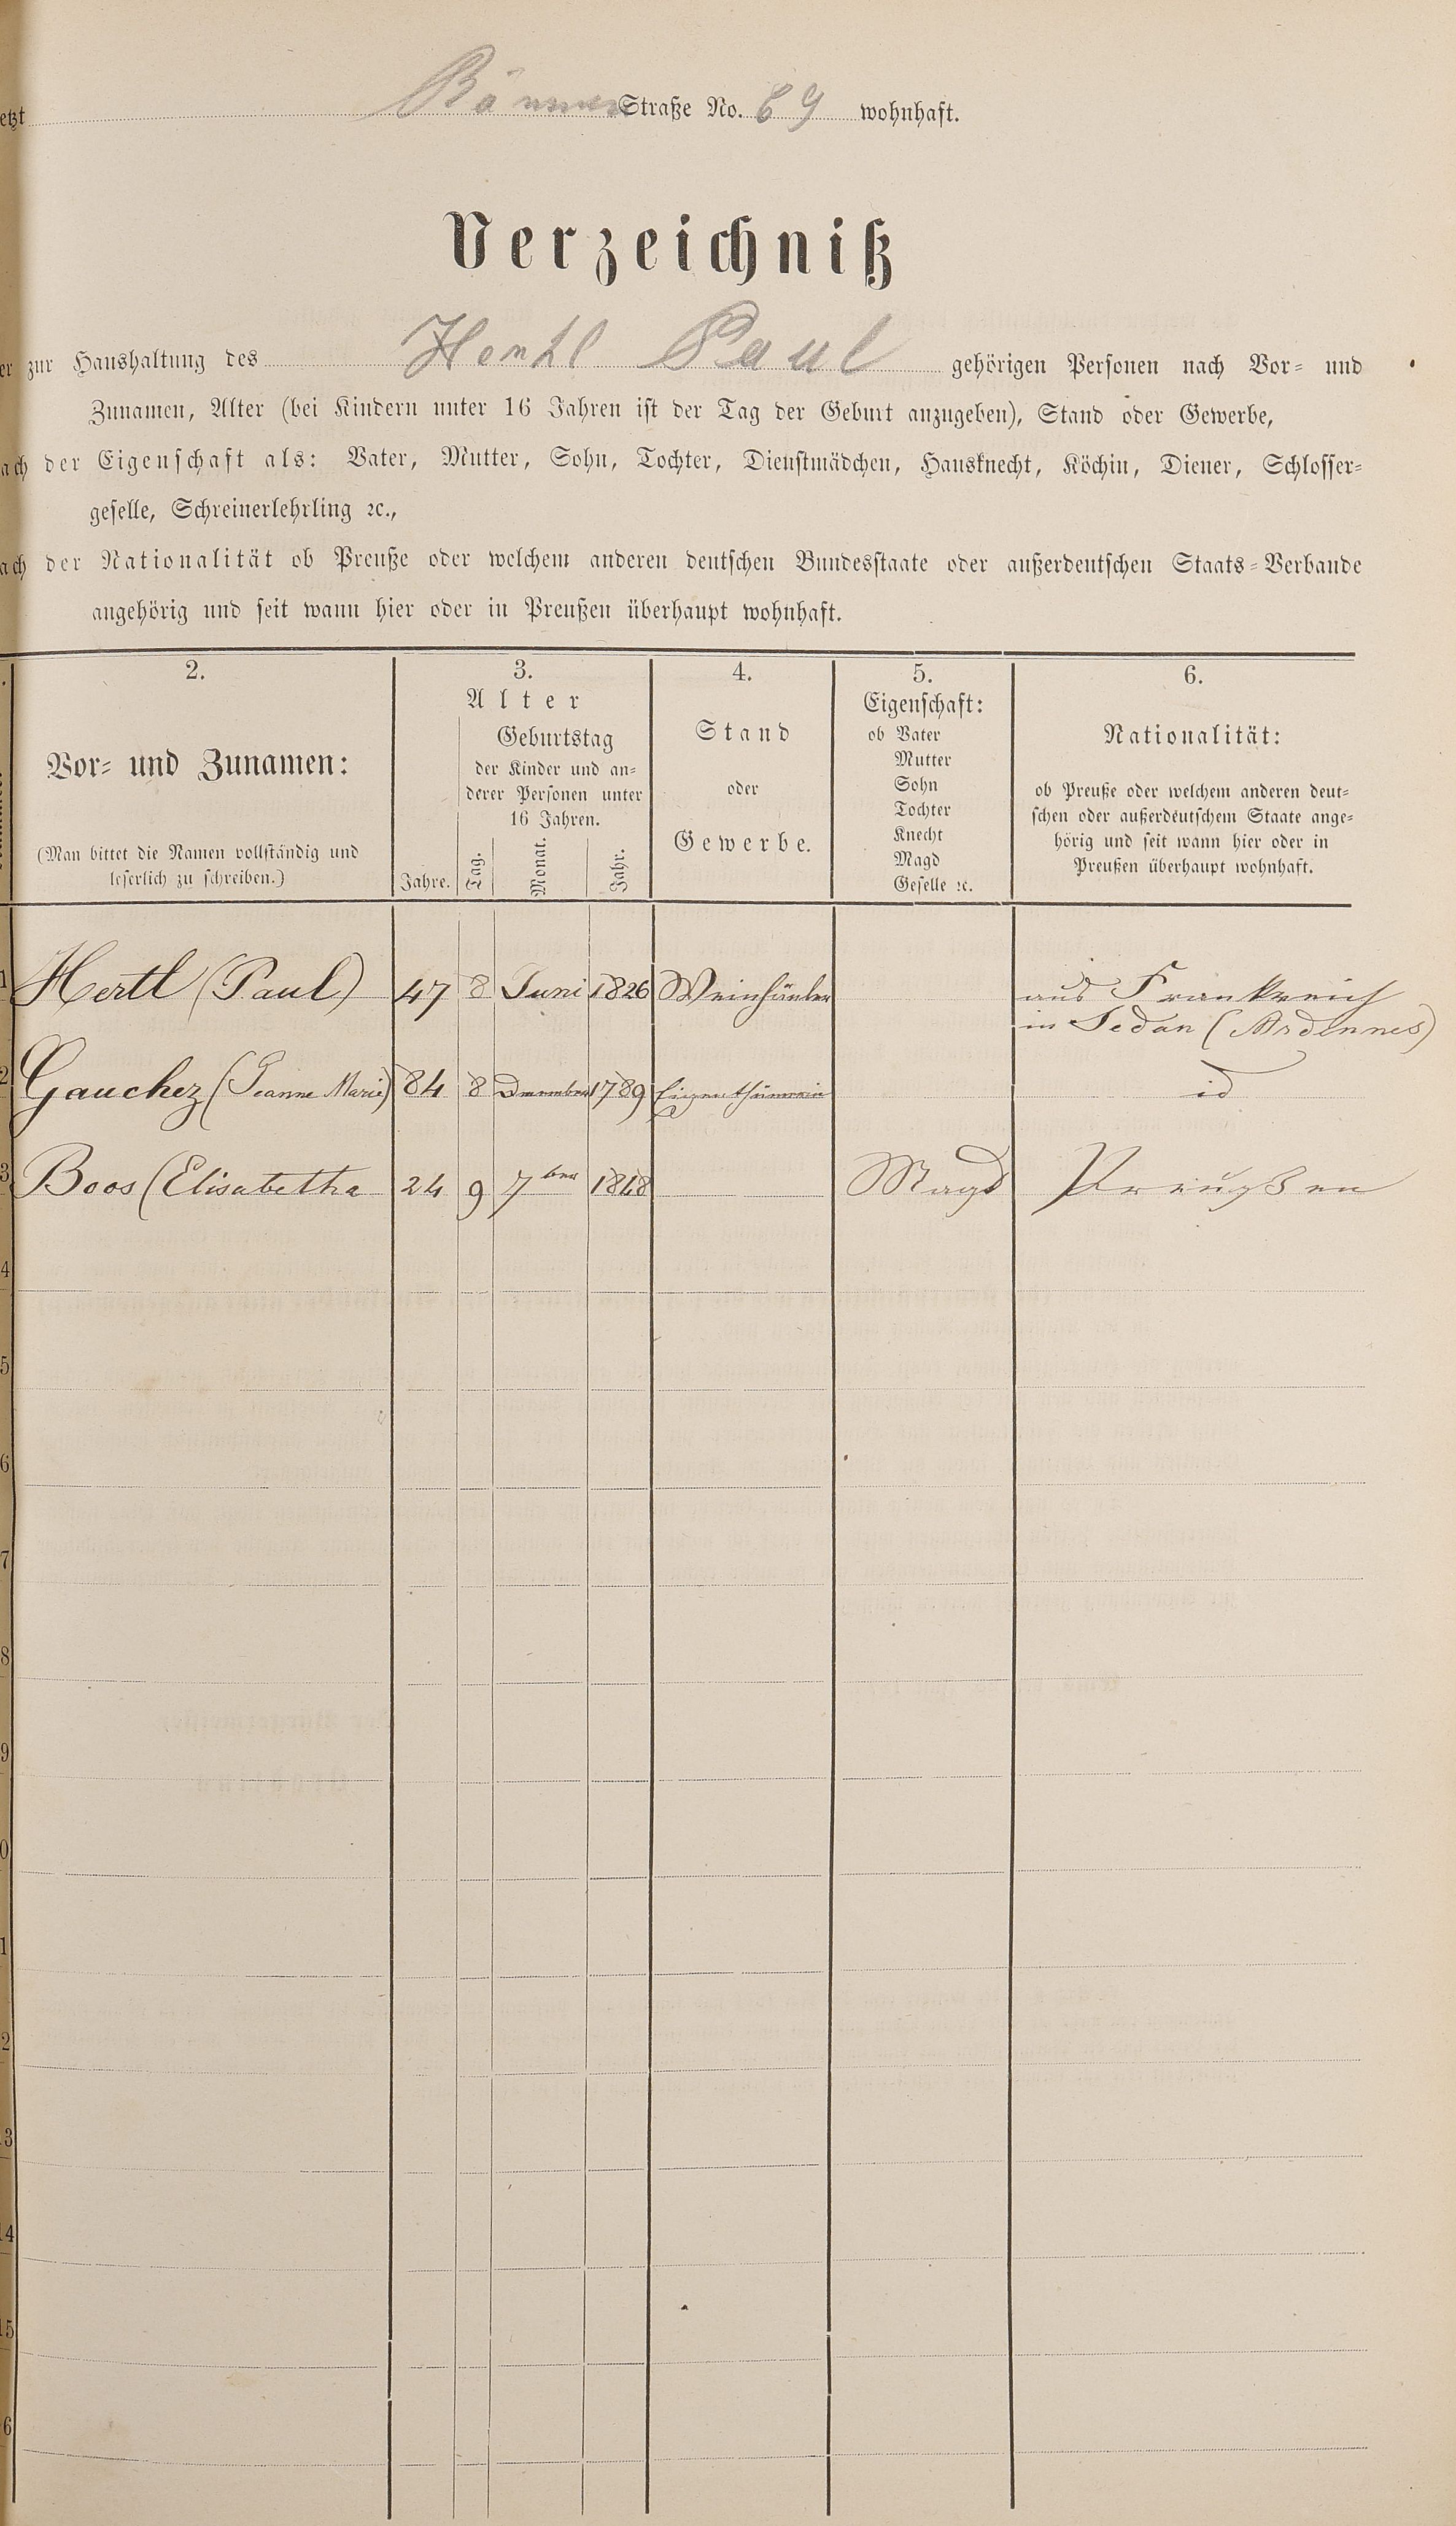 etzt Römer Straße No. 69 wohnhaft.
Verzeichniß
er zur Haushaltung des Hertl Paul gehörigen Personen nach Vor- und
Zunamen, Alter (bei Kindern unter 16 Jahren ist der Tag der Geburt anzugeben), Stand oder Gewerbe,
ach der Eigenschaft als: Vater, Mutter, Sohn, Tochter, Dienstmädchen, Hausknecht, Köchin, Diener, Schlosser-
geselle, Schreinerlehrling ꝛc.,
ach der Nationalität ob Preuße oder welchem anderen deutschen Bundesstaate oder außerdeutschen Staats-Verbande
angehörig und seit wann hier oder in Preußen überhaupt wohnhaft.
2.
Vor- und Zunamen:
(Man bittet die Namen vollständig und
leserlich zu schreiben.)
3.
Alter
Geburtstag
der Kinder und an-
derer Personen unter
16 Jahren.
Jahre. Tag. Monat. Jahr.
4.
Stand
oder
Gewerbe.
5.
Eigenschaft:
ob Vater
Mutter
Sohn
Tochter
Knecht
Magd
Geselle ꝛc.
6.
Nationalität:
ob Preuße oder welchem anderen deut-
schen oder außerdeutschem Staate ange-
hörig und seit wann hier oder in
Preußen überhaupt wohnhaft.
1 Hertl (Paul) 47 8 Juni 1826 Weinhändler aus Frankreich
in Sedan (Ardennes)
2 Gauchez (Jeanne Marie) 84 8 December 1789 Eigenthümerin id
3 Boos (Elisabetha 24 9 7ber 1848 Magd Preußen
4
5
6
7
8
9
0
1
2
13
14
15
6